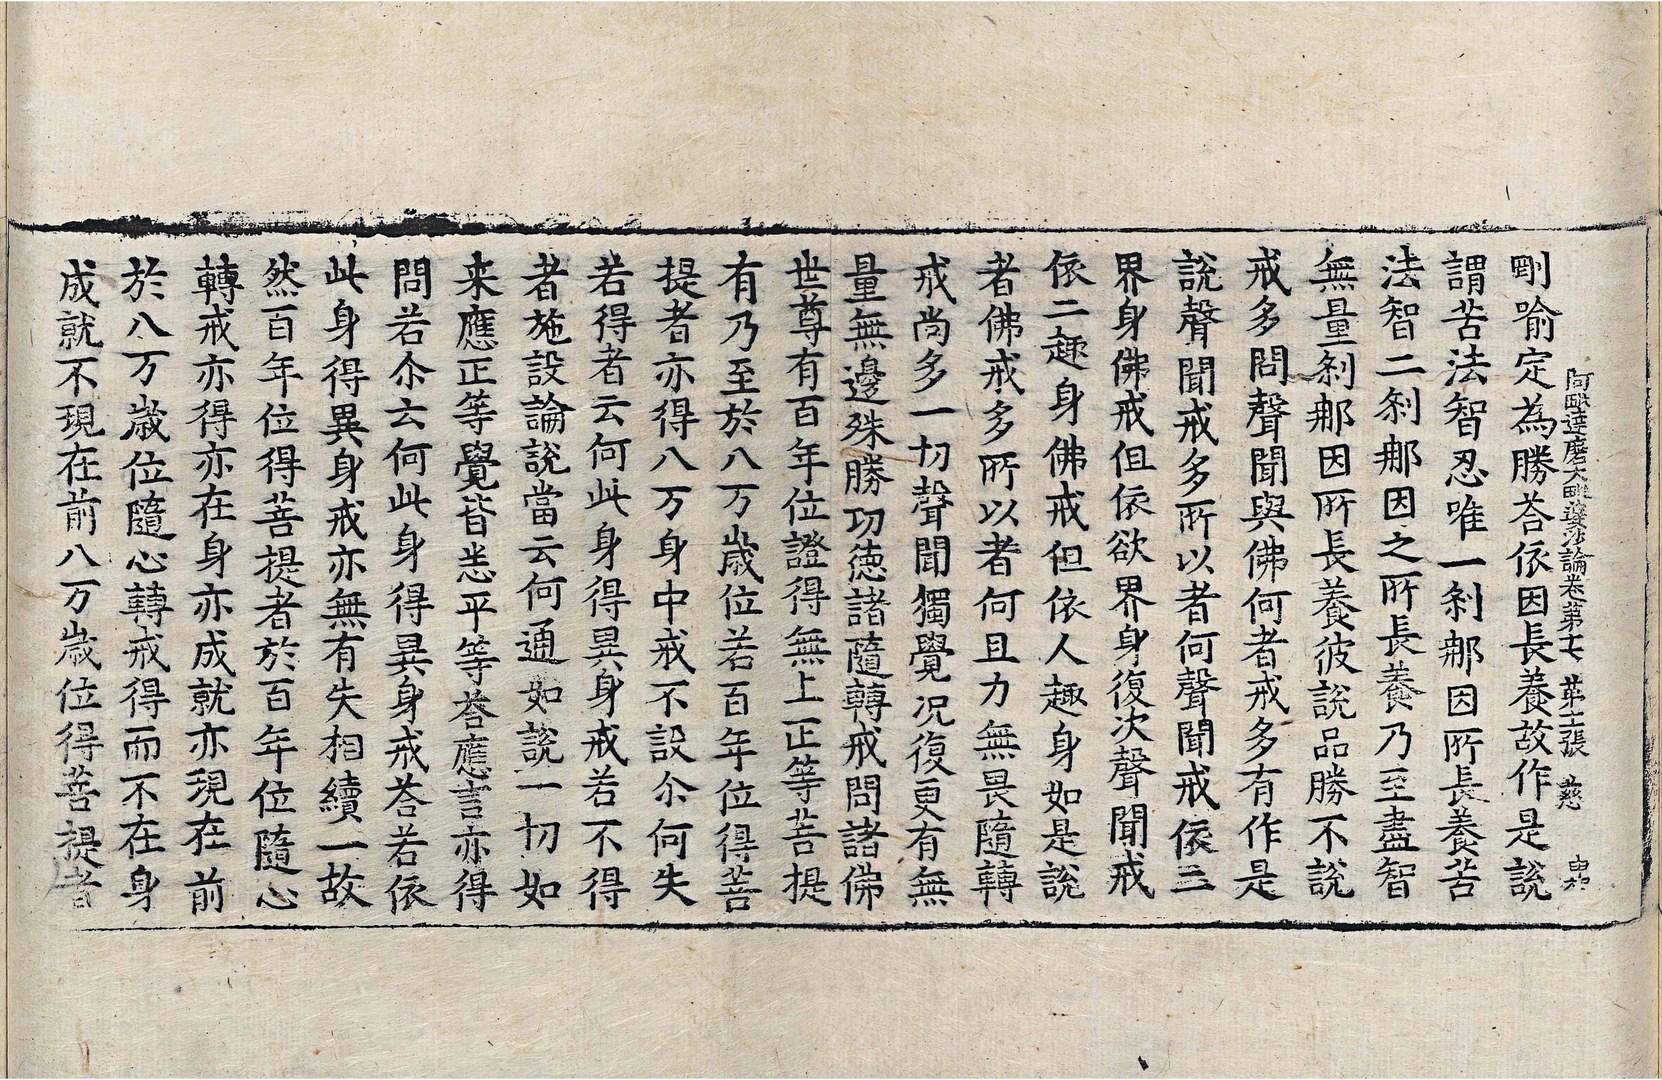 阿毗達磨大毗婆沙論卷第十七 第十二張 慈
剛喻定為勝荅依因長養故作是說
謂苦法智忍唯一剎那因所長養苦
法智二剎那因之所長養乃至盡智
無量剎那因所長養彼說品勝不說
戒多問聲聞與佛何者戒多有作是
說聲聞戒多所以者何聲聞戒依三
界身佛戒但依欲界身復次聲聞戒
依二趣身佛戒但依人趣身如是說
者佛戒多所以者何且力無畏隨轉
戒尚多一切聲聞獨覺况復更有無
量無邊殊勝功德諸隨轉戒問諸佛
世尊有百年位證得無上正等菩提
有乃至於八万歲位若百年位得菩
提者亦得八万身中戒不設尒何失
若得者云何此身得異身戒若不得
者施設論說當云何通如說一切如
来應正等覺皆悉平等荅應言亦得
問若尒云何此身得異身戒荅若依
此身得異身戒亦無有失相續一故
然百年位得菩提者於百年位隨心
轉戒亦得亦在身亦成就亦現在前
於八万歲位隨心轉戒得而不在身
成就不現在前八万歲位得菩提者